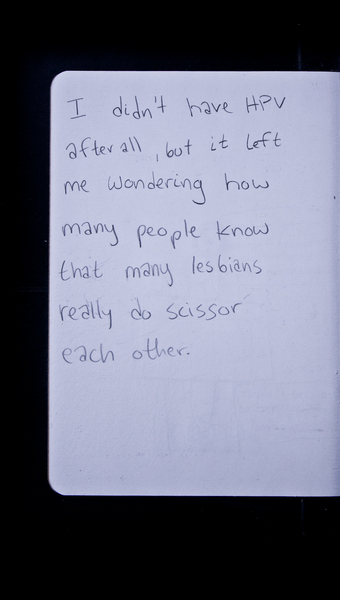 I didn't have HPV
after all, but it left
me wondering how
many people know
that many lesbians
really do scissor
each other.